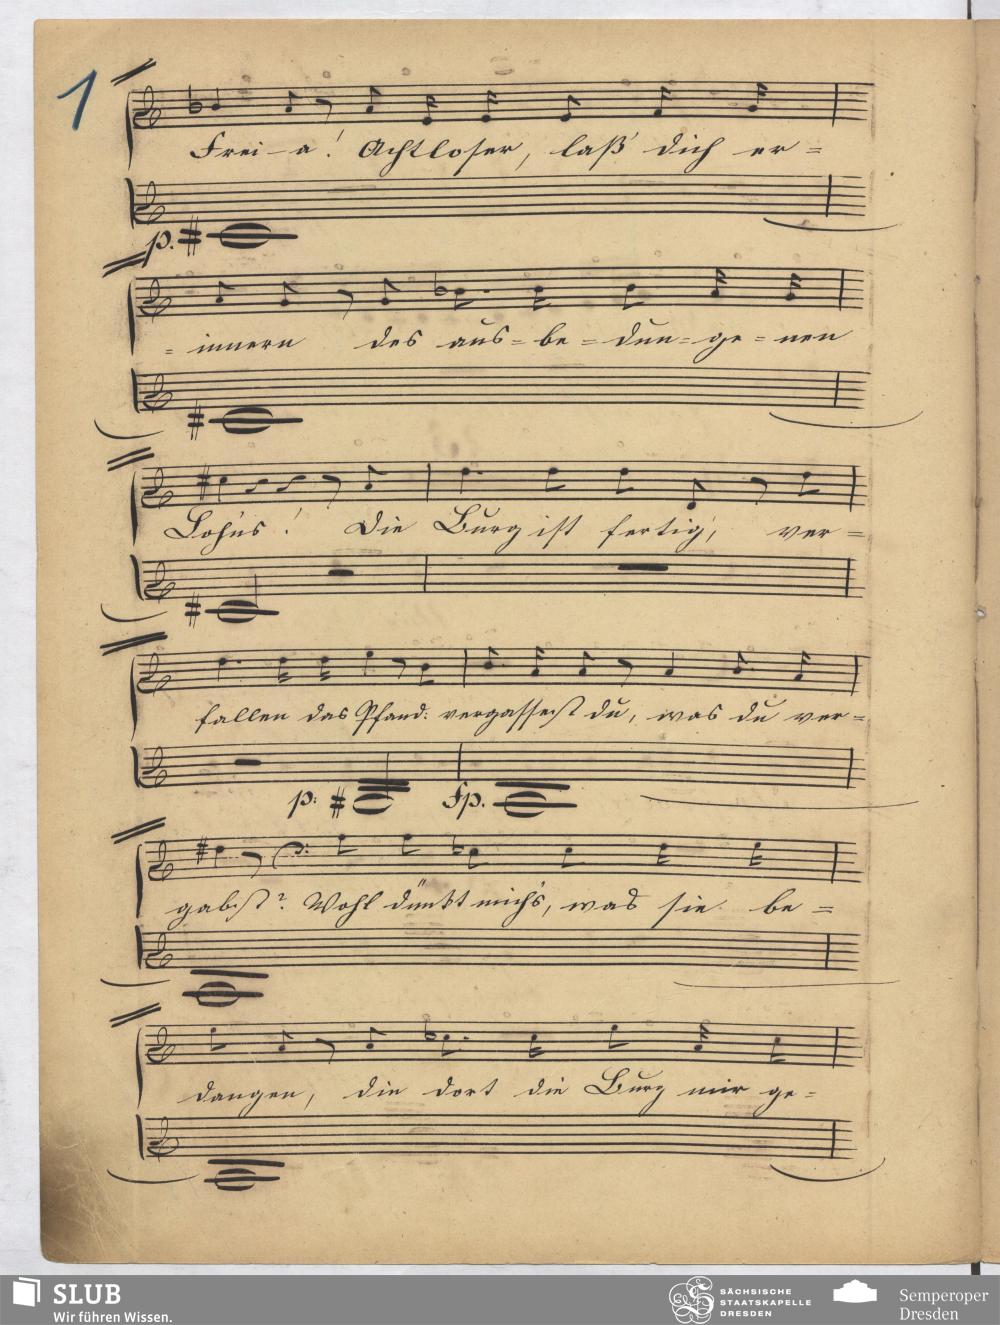 1
Frei-a! Achtloser, laß' dich er=
p.
=innern des aus=be=dun=ge=nen
Lohn's! Die Burg ist fertig, ver=
fallen das Pfand: vergassest du, was du ver=
p: fp.
gabst? Wohl dünkt mich's, was sie be=
dangen, die dort die Burg mir ge=
SLUB
Wir führen Wissen.
SÄCHSISCHE
STAATSKAPELLE
DRESDEN
Semperoper
Dresden